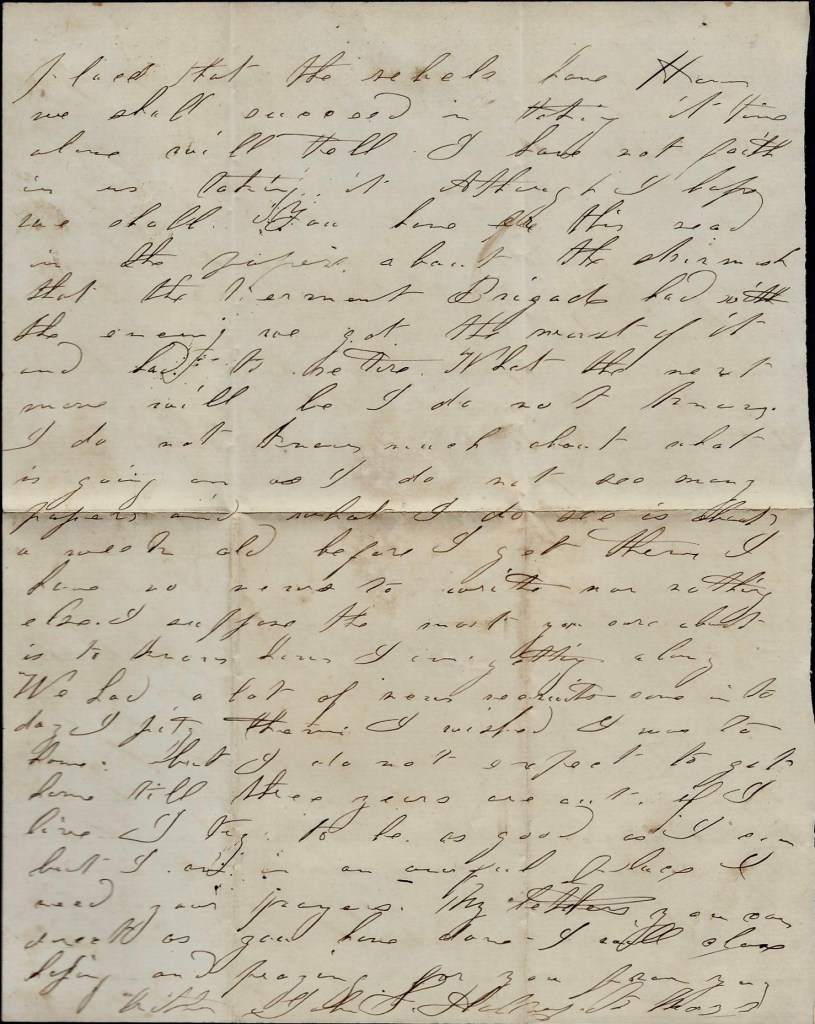 place that the rebels have How
we shall succeed in taking it time
alone will tell. I have not faith
in us taking it Although I hope
we shall. You have ere this read
in the papers about the skirmish
that the Vermont Brigade had with
the enemy we got the worst of it
and had to retire. What the next
move will be I do not know.
I do not know much about what
is going on as I do not see many
papers and what I do see is about
a week old before I get them I
have no news to write nor nothing
else. I suppose the most you care about
is to know how I am getting along
We had a lot of new recruits come in to
day I pity them I wished I was to
home. but I do not expect to get
home till three years are out. if I
live I try to be as good as I can
but I am in an awful place I
need your prayers. My letters you can
direct as you have done - I will close
hoping and praying for you from your